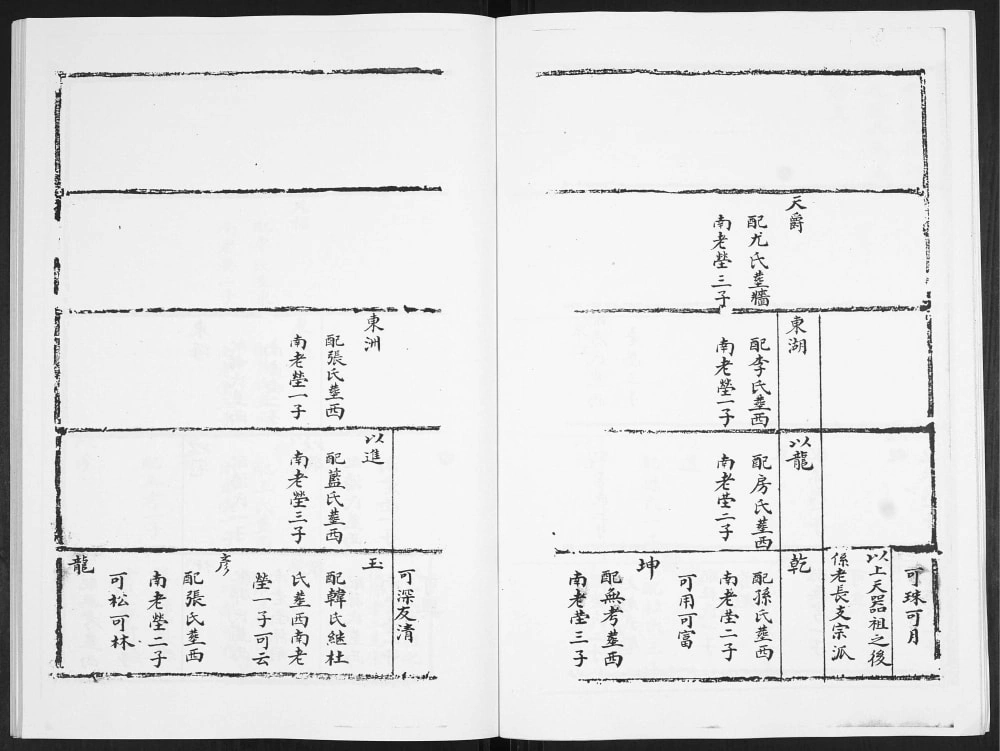 可珠可月
以上天器祖之後
係老長支宗派
天爵
配尤氏塟牆
南老塋三子
東湖
配李氏塟西
南老塋一子
以龍
配房氏塟西
南老塋二子
乾
配孫氏塟西
南老塋二子
可用可富
坤
配無考塟西
南老塋三子
可深友清
東洲
配張氏塟西
南老塋一子
以進
配藍氏塟西
南老塋三子
玉
配韓氏継杜
氏塟西南老
塋一子可云
彥
配張氏塟西
南老塋二子
可松可林
龍